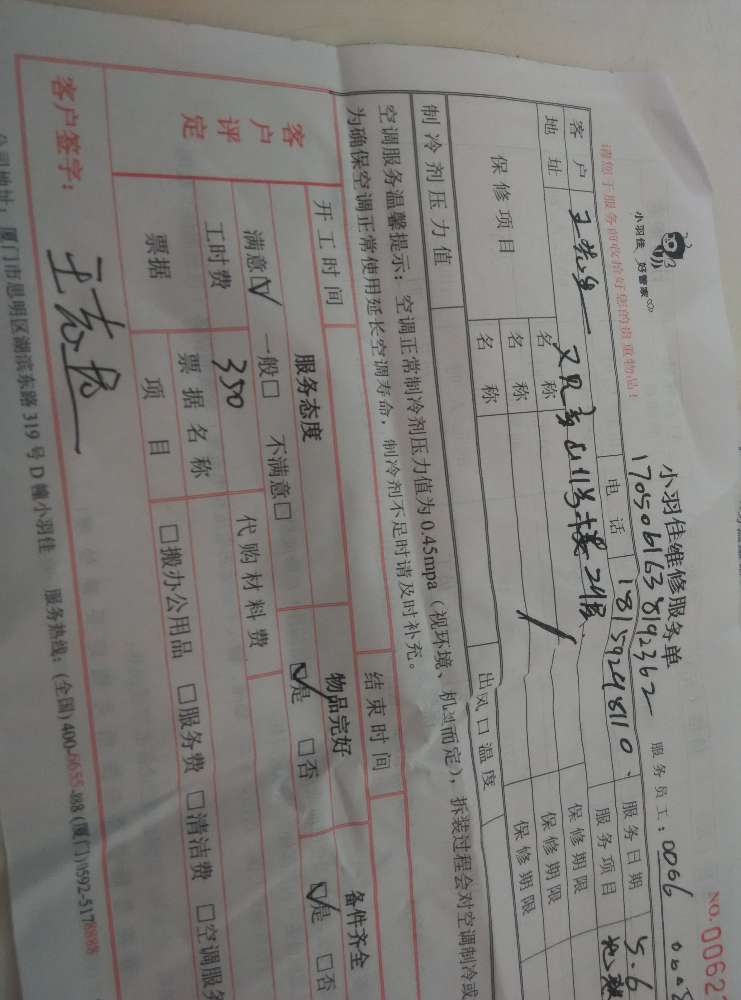 小羽佳 好管家
小羽佳维修服务单
NO.00062
1705061638192362
服务员工：0006
请您于服务前收拾好您的贵重物品！
客户 王先生 电话 18159248110 服务日期 5.6
地址 11号楼 服务项目
保修项目 名称 保修期限
名称 保修期限
名称 保修期限
制冷剂压力值 出风口温度
空调服务温馨提示：空调正常制冷剂压力值为0.45mpa（视环境、机型而定），拆装过程会对空调制冷或
为确保空调正常使用延长空调寿命，制冷剂不足时请及时补充。
开工时间 结束时间
客户评定 服务态度 物品完好 备件齐全
满意☑ 一般□ 不满意□ ☑是 □否 ☑是 □否
工时费 350 代购材料费
票据 票据名称
项目 □搬办公用品 □服务费 □清洁费 □空调服务
客户签字：
公司地址：厦门市思明区湖滨东路319号D幢小羽佳 服务热线：(全国)400-6655-188 (厦门)0592-5178888